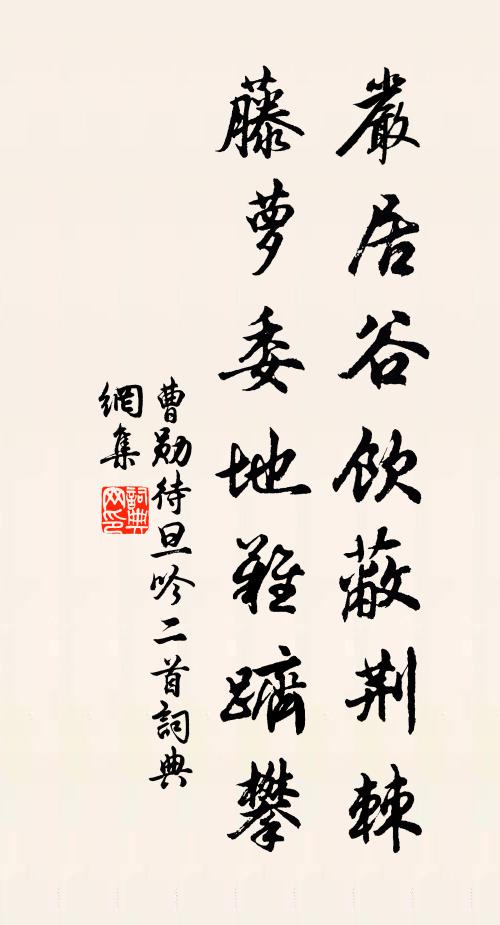 嚴居谷飲蔽荆棘
藤夢委地難躋攀
曹勛待旦吟二首詞典
網集
詞典
网印